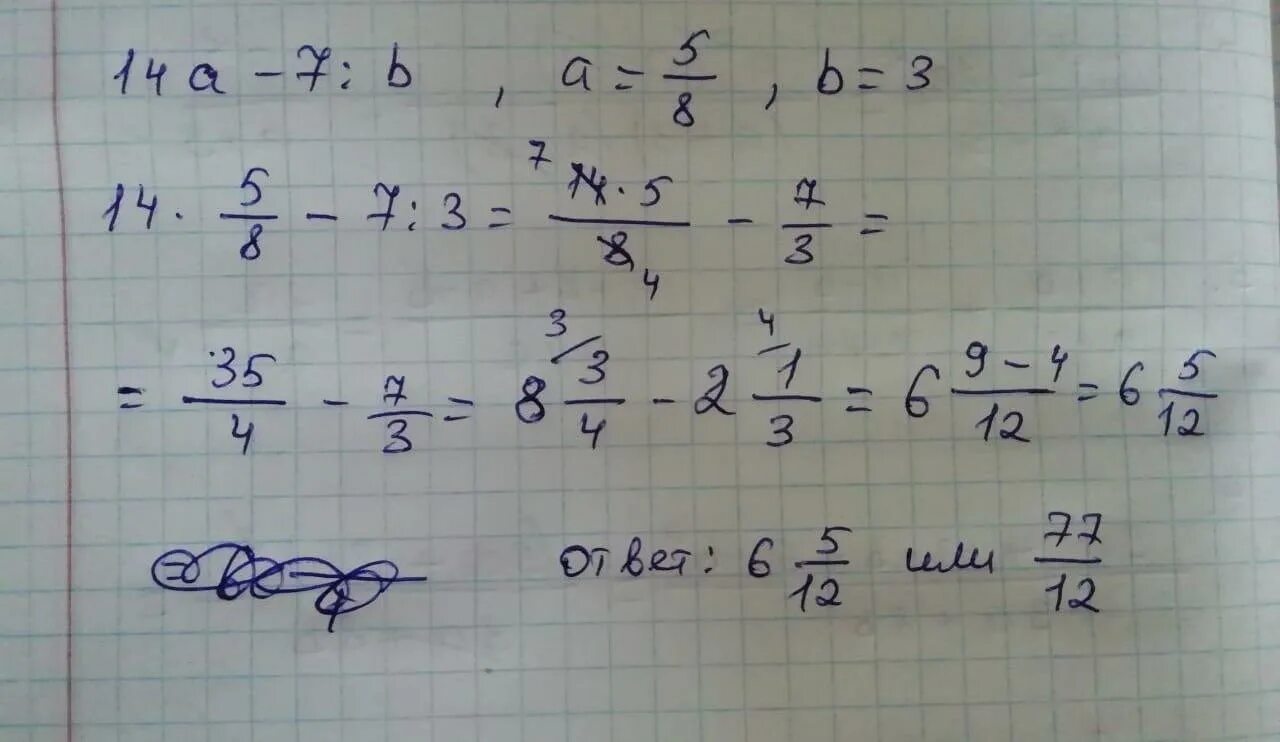 14a - 7 : b , a = 5/8 , b = 3
14 · 5/8 - 7 : 3 = 7 14 · 5 / 8 4 - 7/3 =
= 35/4 - 7/3 = 8 3/ 3/4 - 2 4/ 1/3 = 6 9 - 4 / 12 = 6 5/12
ответ: 6 5/12 или 77/12